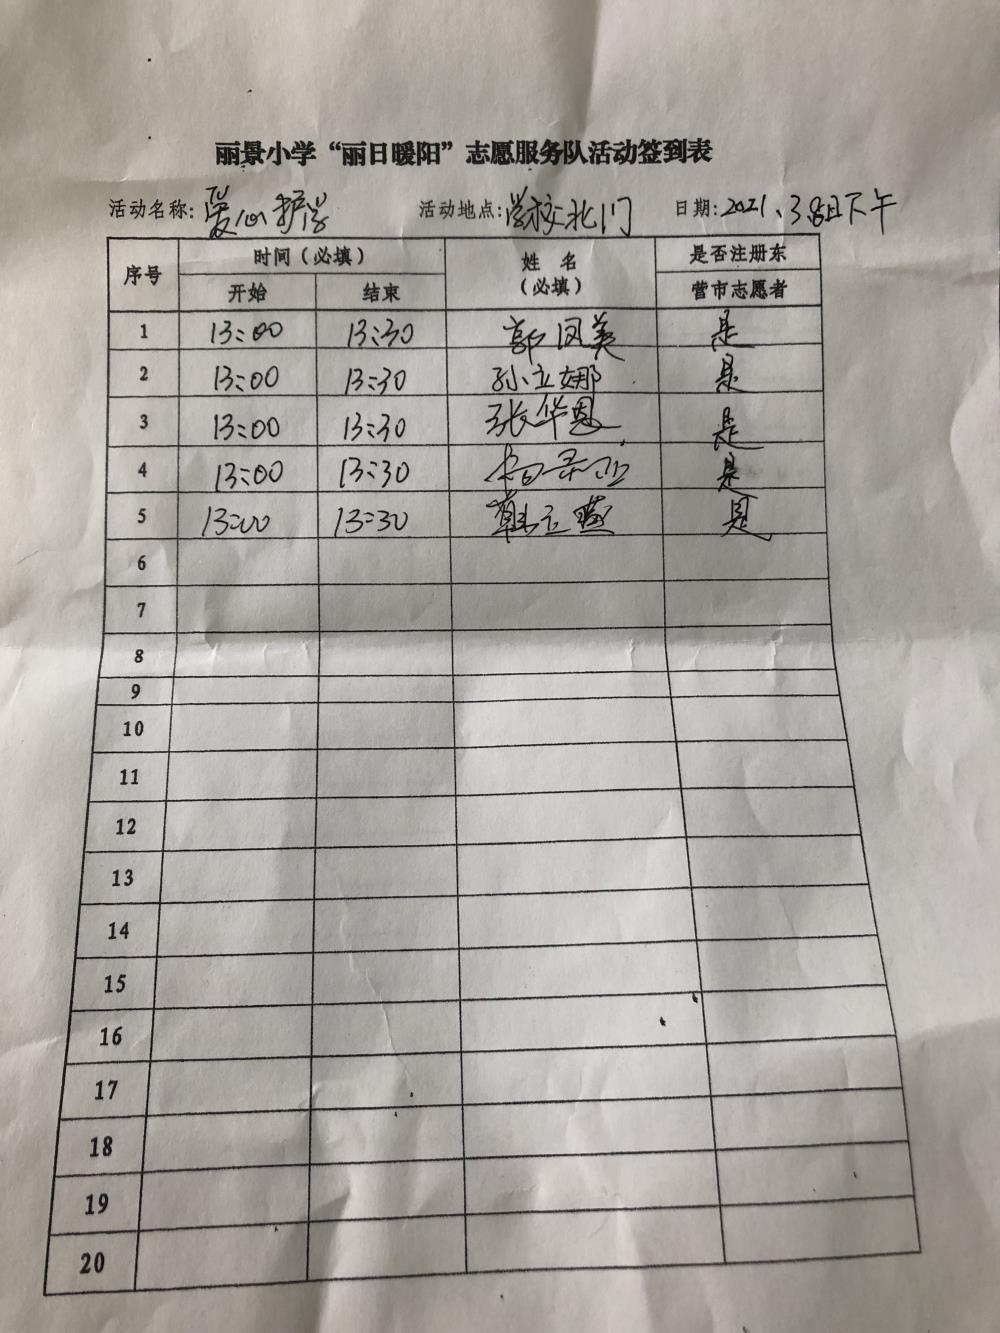 丽景小学“丽日暖阳”志愿服务队活动签到表
活动名称: 爱心护学 活动地点: 学校北门 日期: 2021、3.8日下午
序号 时间(必填) 姓 名 (必填) 是否注册东营市志愿者
开始 结束
1 13:00 13:30 郭凤美 是
2 13:00 13:30 孙立娜 是
3 13:00 13:30 张华恩 是
4 13:00 13:30 是
5 13:00 13:30 韩玉燕 是
6
7
8
9
10
11
12
13
14
15
16
17
18
19
20